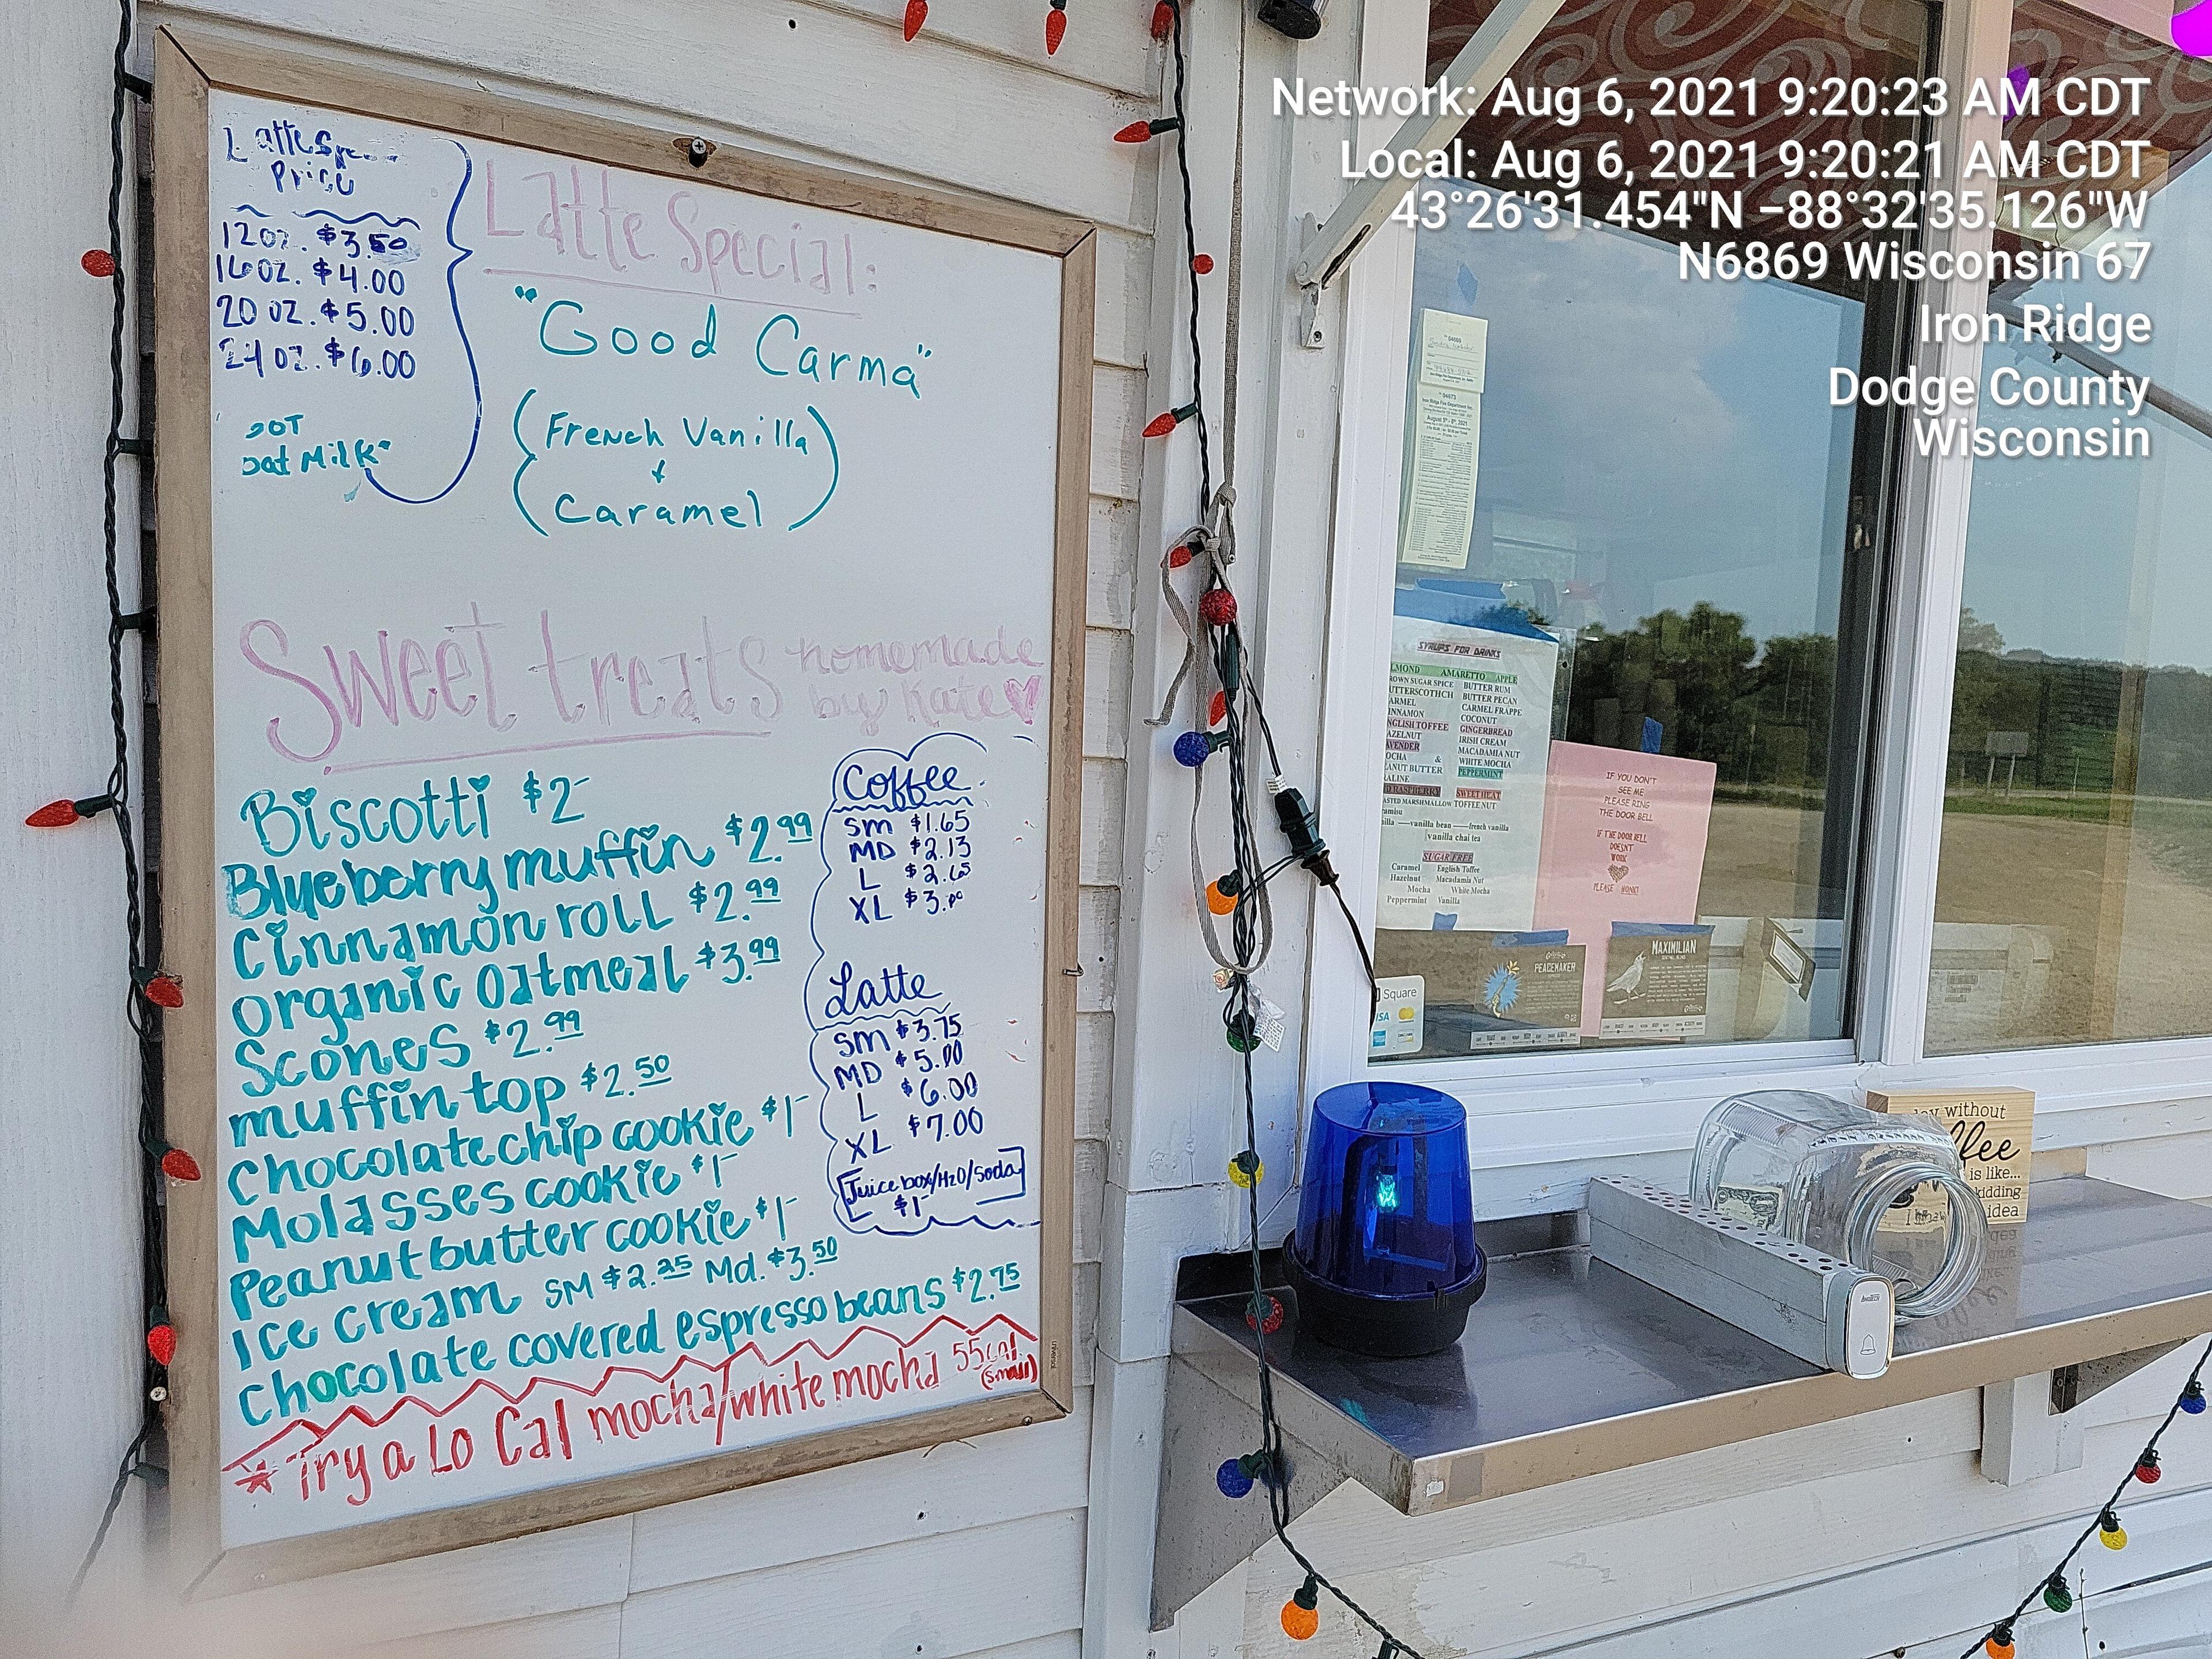 Network: Aug 6, 2021 9:20:23 AM CDT
Local: Aug 6, 2021 9:20:21 AM CDT
43°26'31.454"N -88°32'35.126"W
N6869 Wisconsin 67
Iron Ridge
Dodge County
Wisconsin
Latte
Price
12oz. $3.50
16oz. $4.00
20oz. $5.00
24oz. $6.00
Milk
Latte Special:
"Good Carma"
(French Vanilla
+
Caramel)
Sweet treats homemade
by Kate
Biscotti $2-
Blueberry muffin $2.99
Cinnamon roll $2.99
organic oatmeal $3.99
Scones $2.99
muffin top $2.50
chocolate chip cookie $1-
Molasses cookie $1-
Peanut butter cookie $1-
Ice cream SM $2.25 Md. $3.50
chocolate covered espresso beans $2.75
Coffee
SM $1.65
MD $2.13
L $2.65
XL $3.00
Latte
SM $3.75
MD $5.00
L $6.00
XL $7.00
Juice box/H2O/Soda
$1-
*Try a Lo Cal mocha/white mocha 55 cal.
(small)
SYRUPS FOR DRINKS
AMARETTO APPLE
BUTTER RUM
BUTTER PECAN
CARMEL FRAPPE
COCONUT
ENGLISH TOFFEE GINGERBREAD
IRISH CREAM
MACADAMIA NUT
& WHITE MOCHA
PEPPERMINT
SWEET HEAT
MARSHMALLOW TOFFEE NUT
vanilla bean french vanilla
vanilla chai tea
SUGAR FREE
Caramel English Toffee
Hazelnut Macadamia Nut
Mocha White Mocha
Peppermint Vanilla
IF YOU DON'T
SEE ME
PLEASE RING
THE DOOR BELL
IF THE DOOR BELL
DOESN'T
WORK
PLEASE HONK!
PEACEMAKER
MAXIMILIAN
Square
without
is like...
idea